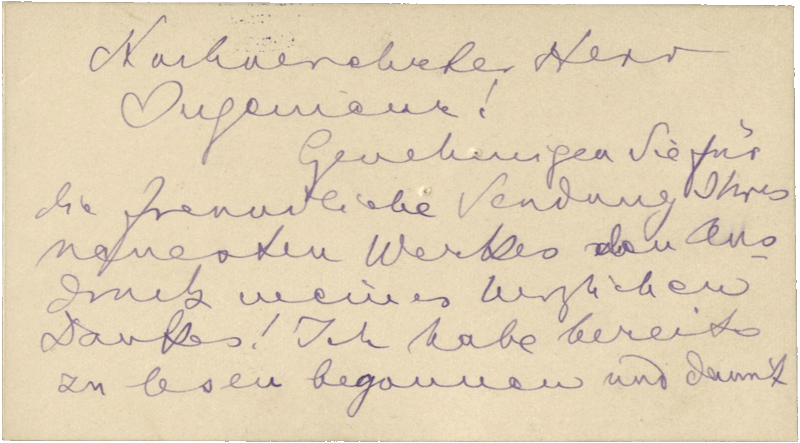 Hochverehrter Herr
Ingenieur!
Genehmigen Sie für
die freundliche Sendung Ihres
neuesten Werkes den Aus-
druck meines herzlichen
Dankes! Ich habe bereits
zu lesen begonnen und damit